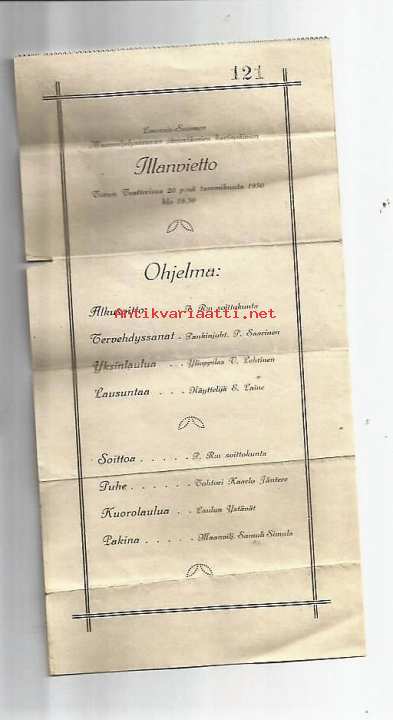 121
Lounais-Suomen
Illanvietto
Turun Teatterissa 20 p:nä tammikuuta 1950
klo 18.30
Ohjelma:
antikvariaatti.net
Alkusoitto . . . P. R:n soittokunta
Tervehdyssanat . Pankinjoht. P. Saarinen
Yksinlaulua . . . Ylioppilas V. Lehtinen
Lausuntaa . . . Näyttelijä E. Laine
Soittoa . . . . . P. R:n soittokunta
Puhe . . . . . . Tohtori Kaarlo Jäntere
Kuorolaulua . . Laulun Ystävät
Pakina . . . . . Maanvilj. Samuli Simula